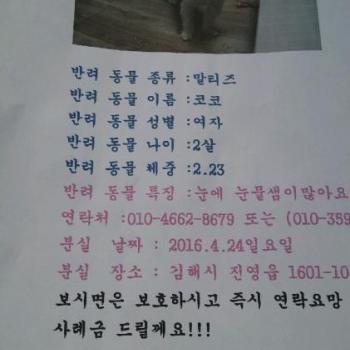 반려 동물 종류 :말티즈
반려 동물 이름 :코코
반려 동물 성별 :여자
반려 동물 나이 :2살
반려 동물 체중 :2.23
반려 동물 특징 :눈에 눈물샘이많아요
연락처 :010-4662-8679 또는 (010-359
분실 날짜 : 2016.4.24일요일
분실 장소 : 김해시 진영읍 1601-10
보시면은 보호하시고 즉시 연락요망
사례금 드릴께요!!!